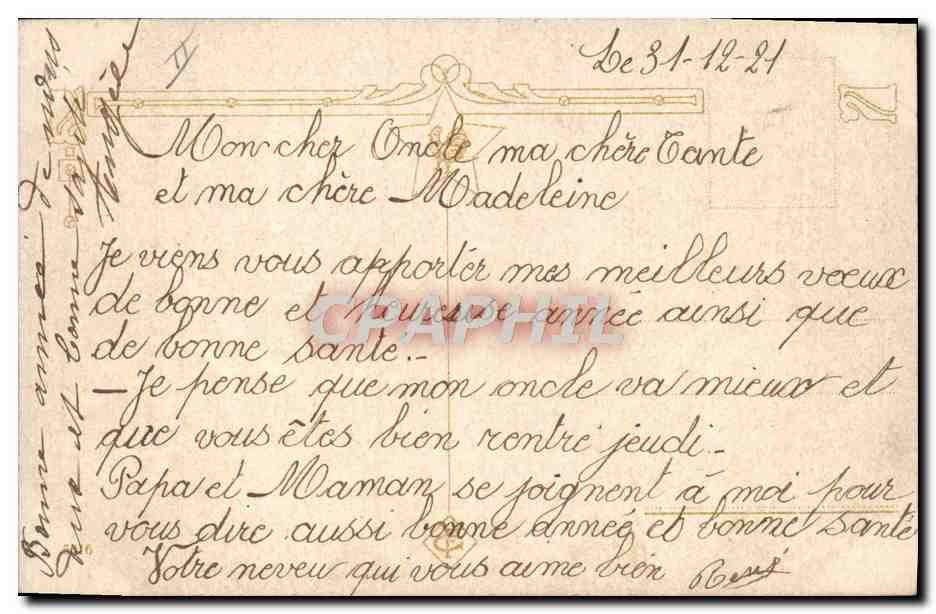 Le 31-12-21
Mon cher Oncle ma chère Tante
et ma chère Madeleine
Je viens vous apporter mes meilleurs voeux
de bonne et heureuse année ainsi que
de bonne santé.-
- Je pense que mon oncle va mieux et
que vous êtes bien rentré jeudi.-
Papa et Maman se joignent à moi pour
vous dire aussi bonne année et bonne santé
Votre neveu qui vous aime bien René
Bonne année de nous
et bonne santé
CPAPHIL